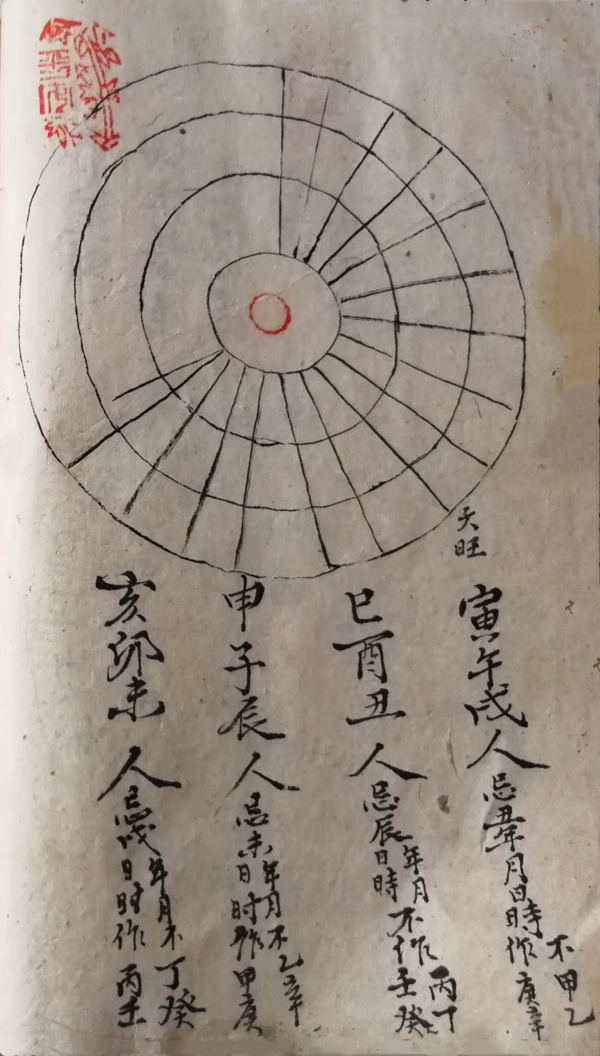 天旺
寅午戌人忌丑年月日時不作甲乙庚辛
巳酉丑人忌辰年月日時不作丙丁壬癸
申子辰人忌未年月日时不作乙辛甲庚
亥卯未人忌戌年月日时不作丁癸丙壬